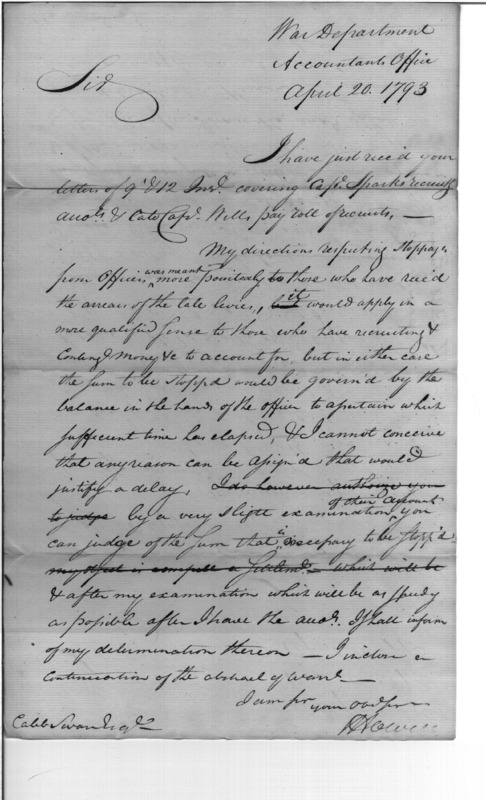 War Department
Accountants Office
April 20. 1793
Sir
I have just rec'd your
letters of 9' & 12 Inst. covering Capt. Sparks recruitg
accots. & Late Capt. Wells pay roll of recruits, —
My directions respecting stoppages
from Officers, was meant more positively to those who have rec'd
the arrears of the late levies, but it would apply in a
more qualified sense to those who have recruiting &
Conting't money &c to account for, but in either case
the sum to be stopp'd would be govern'd by the
balance in the hands of the officer to ascertain which
sufficient time has elapsed, & I cannot conceive
that any reason can be assign'd that would
justify a delay, I do however authorize you
to judge by a very slight examination of their account you
can judge of the sum that is necessary to be stopp'd
my object is compell a Settlemt. — which will be
& after my examination which will be as speedy
as possible after I have the accots. I shall inform
of my determination thereon — I inclose a
Continuation of the abstract of warrts —
I am sir your obd ser
Caleb Swan Esqr.
J Howell